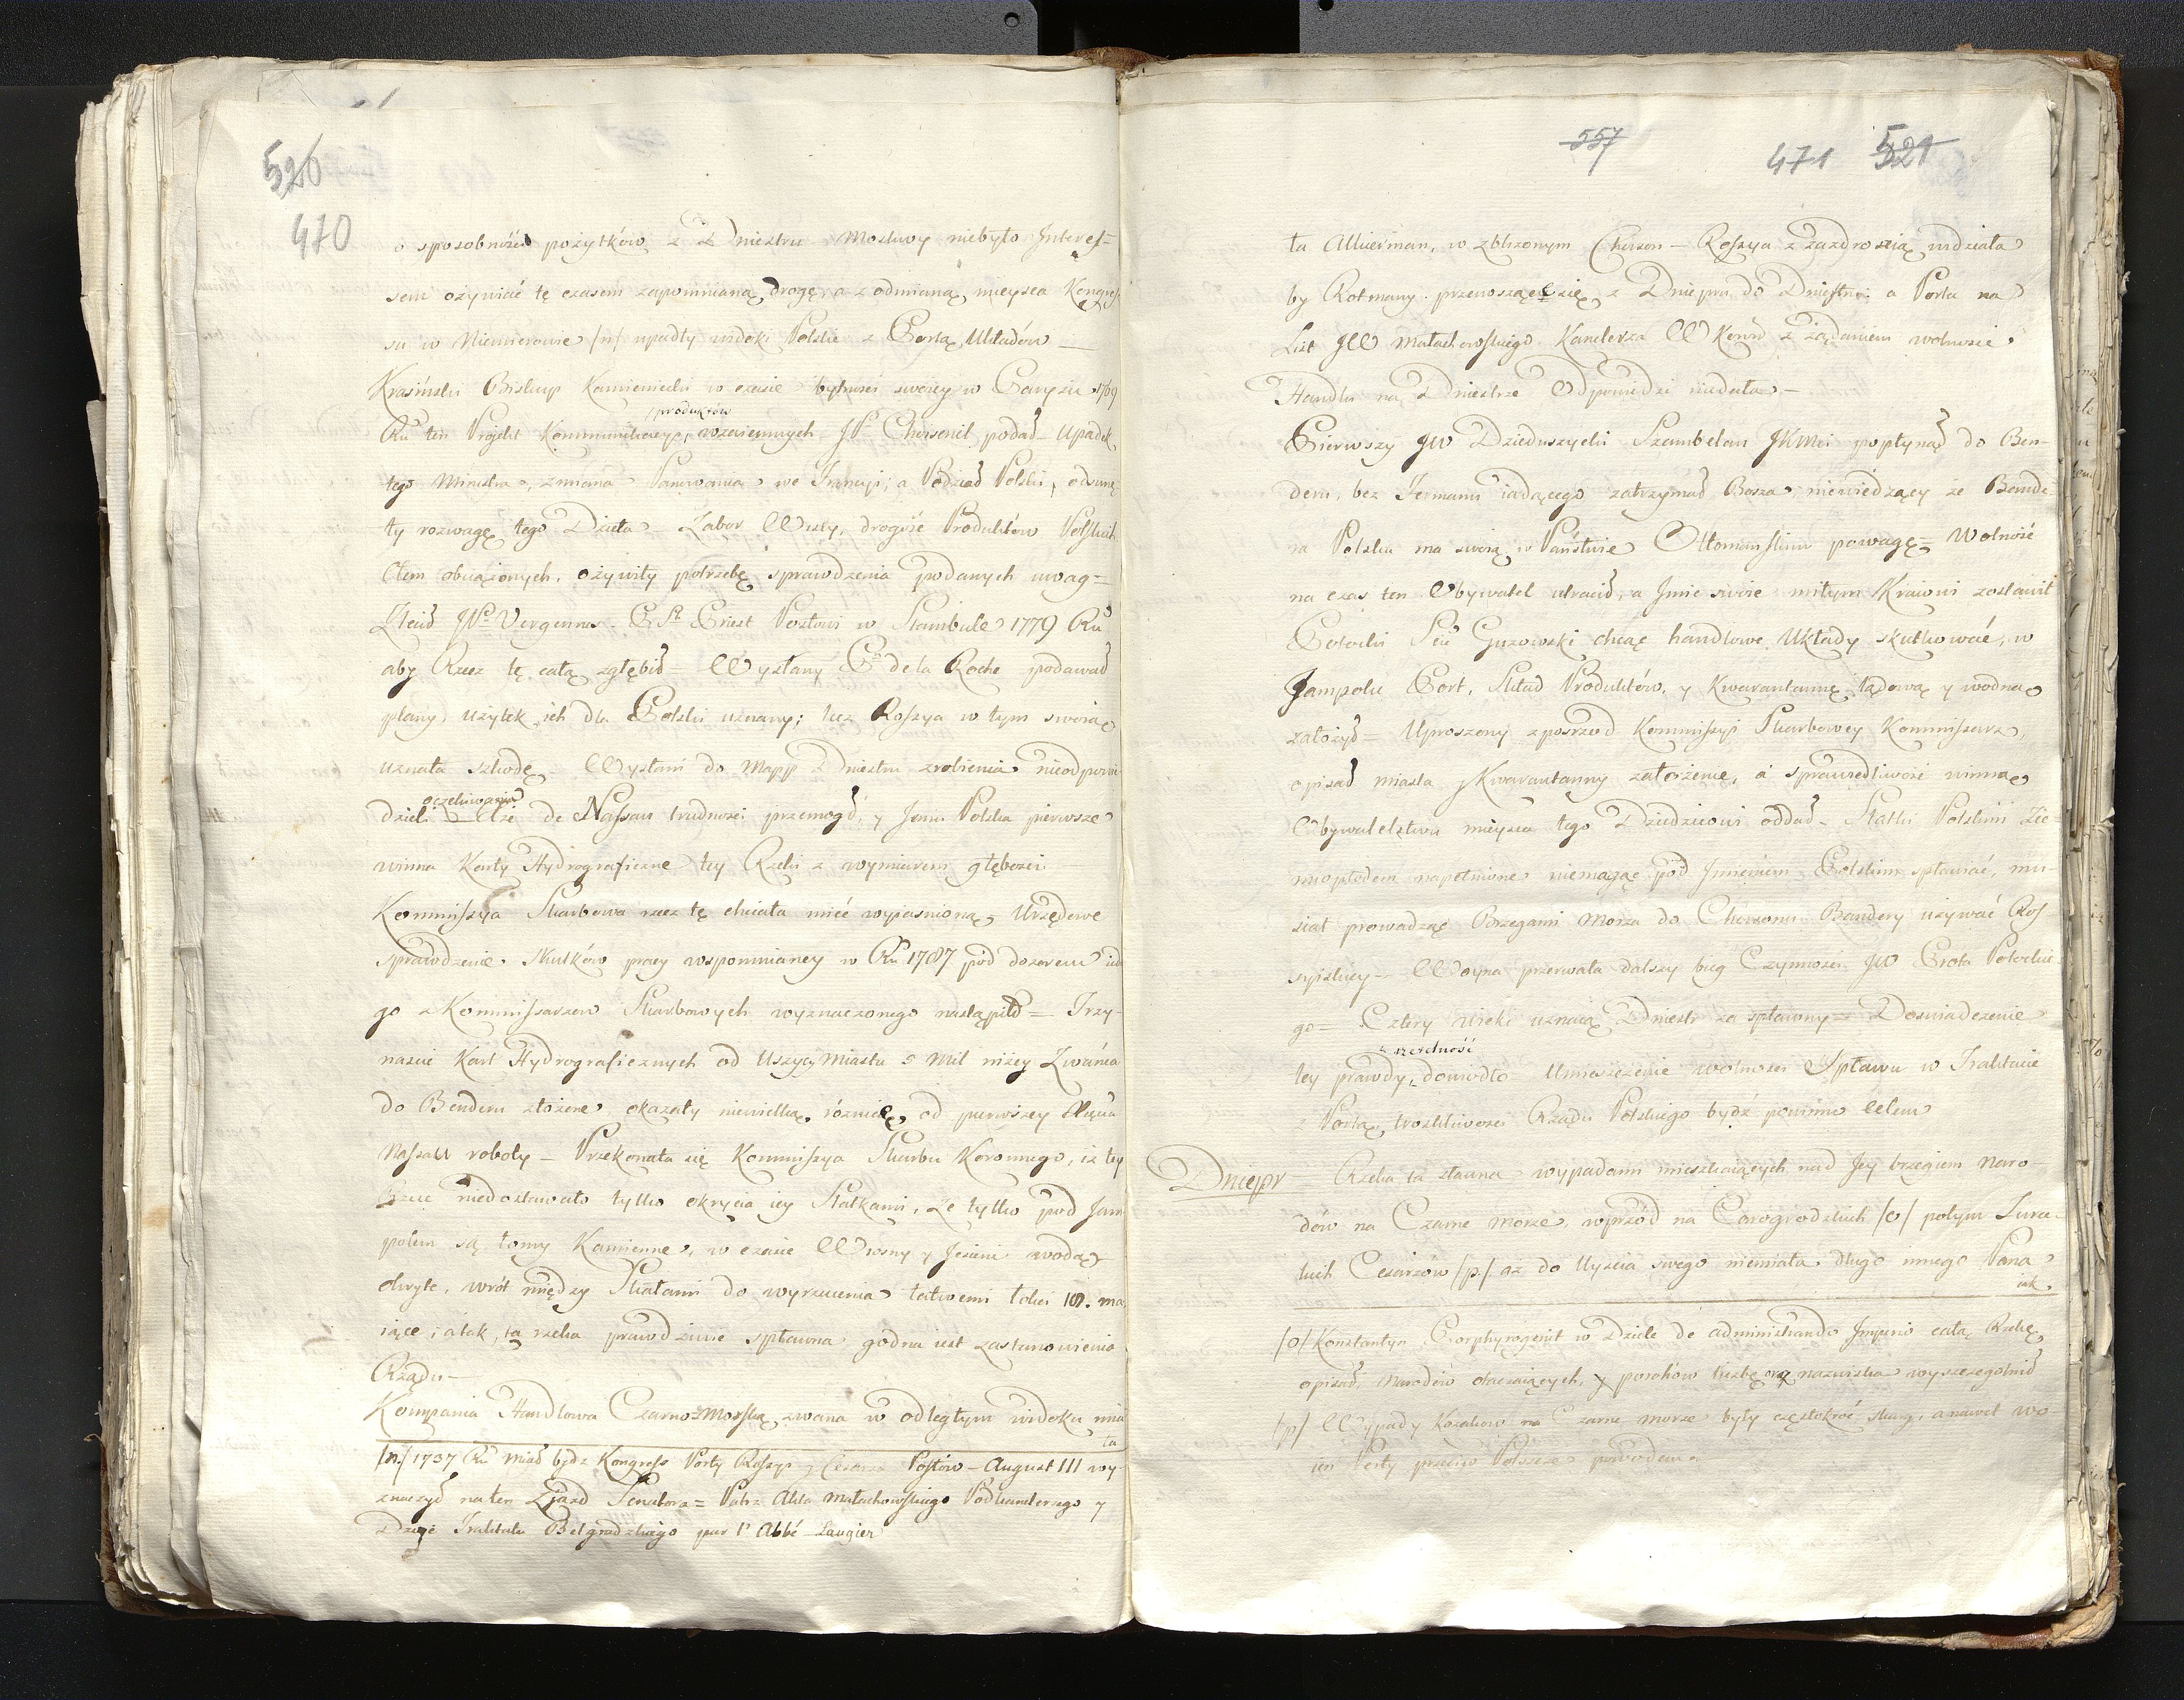 520
470
o sposobność pożytków z Dniestru Moskwy niebyło Interes=
sem ożywiać tę czasem zapomnianą drogę, a z odmianą mieysca Kongres
su w Niemierowie /n/ upadły widoki Polskie z Portą Układów —
Krasiński Biskup Kamieniecki w czasie bytności swoiey w Paryżu 1769
Ru ten Projekt Kommunikacyi, wzaiemnych JP. Choiseuil podał – Upadek
produktów
tego Ministra, zmiana Panowania we Francyi, a Podział Polski, odsunę
ły rozwagę tego Dzieła – Zabor Wisły, drogość Produktów Polskich
Cłem obciążonych, ożywiły potrzebę sprawdzenia podanych uwag =
Zlecił JP. Vergennes P. St. Priest Posłowi w Stambule 1779 Ru
aby Rzecz tę całą zgłębił = Wysłany P. de la Roche podawał
plany, użytek ich dla Polski uznany; lecz Rossya w tym swoią
uznała szkodę – Wysłani do Mapp Dniestru zrobienia nieodpowie
dzieli oczekiwaniu – de Nassau trudności przemogł, y Jemu Polska pierwsze
winna Karty Hydrograficzne tey Rzeki z wymiarem głębości
Kommissya Skarbowa rzecz tę chciała mieć wyiaśnioną, Urzędowe
sprawdzenie skutków pracy wspomnianey w Ru 1787 pod dozorem iedne
go z Kommissarzow Skarbowych wyznaczonego nastąpiło = Trzy-
naście Kart Hydrograficznych od Uszycy Miasta 5 Mil niżey Żwańca
do Benderu złożone, okazały niewielką różnicę od pierwszey Xięcia
Nassau roboty – Przekonała się Kommissya Skarbu Koronnego, iż tey
Rzece niedostawało tylko okrycia iey Statkami, że tylko pod Jam
polem są łomy Kamienne, w czasie Wiosny y Jesieni wodą
okryte, wrót między Skałami do wyrzucenia łatwemi łokci 10. ma
iące, a tak, ta rzeka prawdziwie spławna godna iest zastanowienia
Rządu —
Kompania Handlowa Czarno=Morska zwana w odległym widoku mia
ła
/n/ 1737 Ru miał bydź Kongress Porty Rossyi y Cesarza Posłów – August III wy-
znaczył na ten Zjazd Senatora = Patrz Akta Małachowskiego Podkanclerzego y
Dzieje Traktatu Belgradzkiego par l' Abbé Laugier
557
471 521
ła Akierman, w zbliżonym Cherson – Rossya z zazdrością widziała
by Rotmany przenoszące się z Dniepru do Dniestru, a Porta na
List JW Małachowskiego Kanclerza W Koron z żądaniem wolności
Handlu na Dniestrze Odpowiedzi niedała. –
Pierwszy JW Dzieduszycki Szambelan JKMci popłynął do Ben-
deru, bez Fermanu iadącego zatrzymał Basza, niewiedzący że Bande
ra Polska ma swoią w Państwie Ottomańskim powagę = Wolność
na czas ten Obywatel utracił, a Jmie swoie miłym Kraiowi zostawił
Potocki Guzowski chcąc handlowe Układy skutkować, w
Jampolu Port, Skład Produktów, y Kwarantannę lądową y wodną
założył = Uproszony z posrzod Kommissyi Skarbowey Kommissarz,
opisał miasta y Kwarantanny założenie, a sprawiedliwość winną
Obywatelstwu mieysca tego Dziedzicowi oddał. Statki Polskim Zie
miopłodem napełnione niemogąc pod Jmieniem Polskim spławiać, mu
siał prowadząc Brzegami Morza do Chersonu Bandery używać Ros
syiskiey – Woyna przerwała dalszy bieg Czynności JW Prota Potockie
go = Cztery wieki uznaią Dniestr za spławny = Doświadczenie
tey prawdy, dowiodło Umieszczenie wolności Spławu w Traktacie
z Portą, troskliwości Rządu Polskiego bydź powinno celem
Dniepr – Rzeka ta sławna wypadami mieszkaiących nad Jey brzegiem Naro-
dów na Czarne Morze, wprzód na Carogrodzkich /o/ potym Turec-
kich Cesarzów /p/ aż do Uyścia swego niemiała długo innego Pana
iak
/o/ Konstantyn Porphyrogenit w Dziele de administrando Imperio całą Rzekę
opisał, Narodów otaczaiących, y porohow liczbę oraz nazwiska wyszczegolnił
/p/ Wypady Kozakow na Czarne Morze były częstokroć skargi, a nawet wo
ien Porty przeciw Polszcze powodem